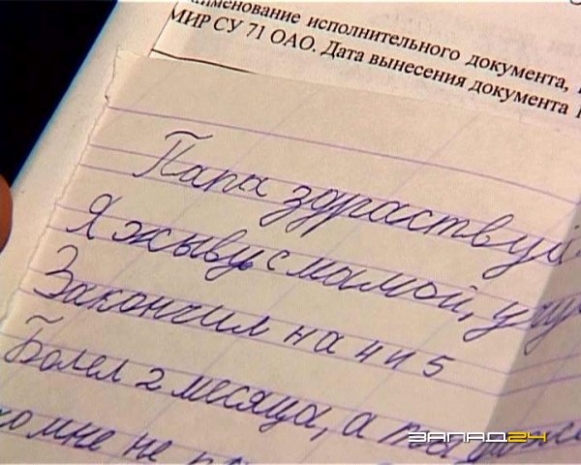 именование исполнительного документа,
МИР СУ 71 ОАО. Дата вынесения документа
Папа здраствуй
Я жыву с мамой,
Закончил на 4 и 5
Болел 2 месяца, а
мне не
ЗАПАД24